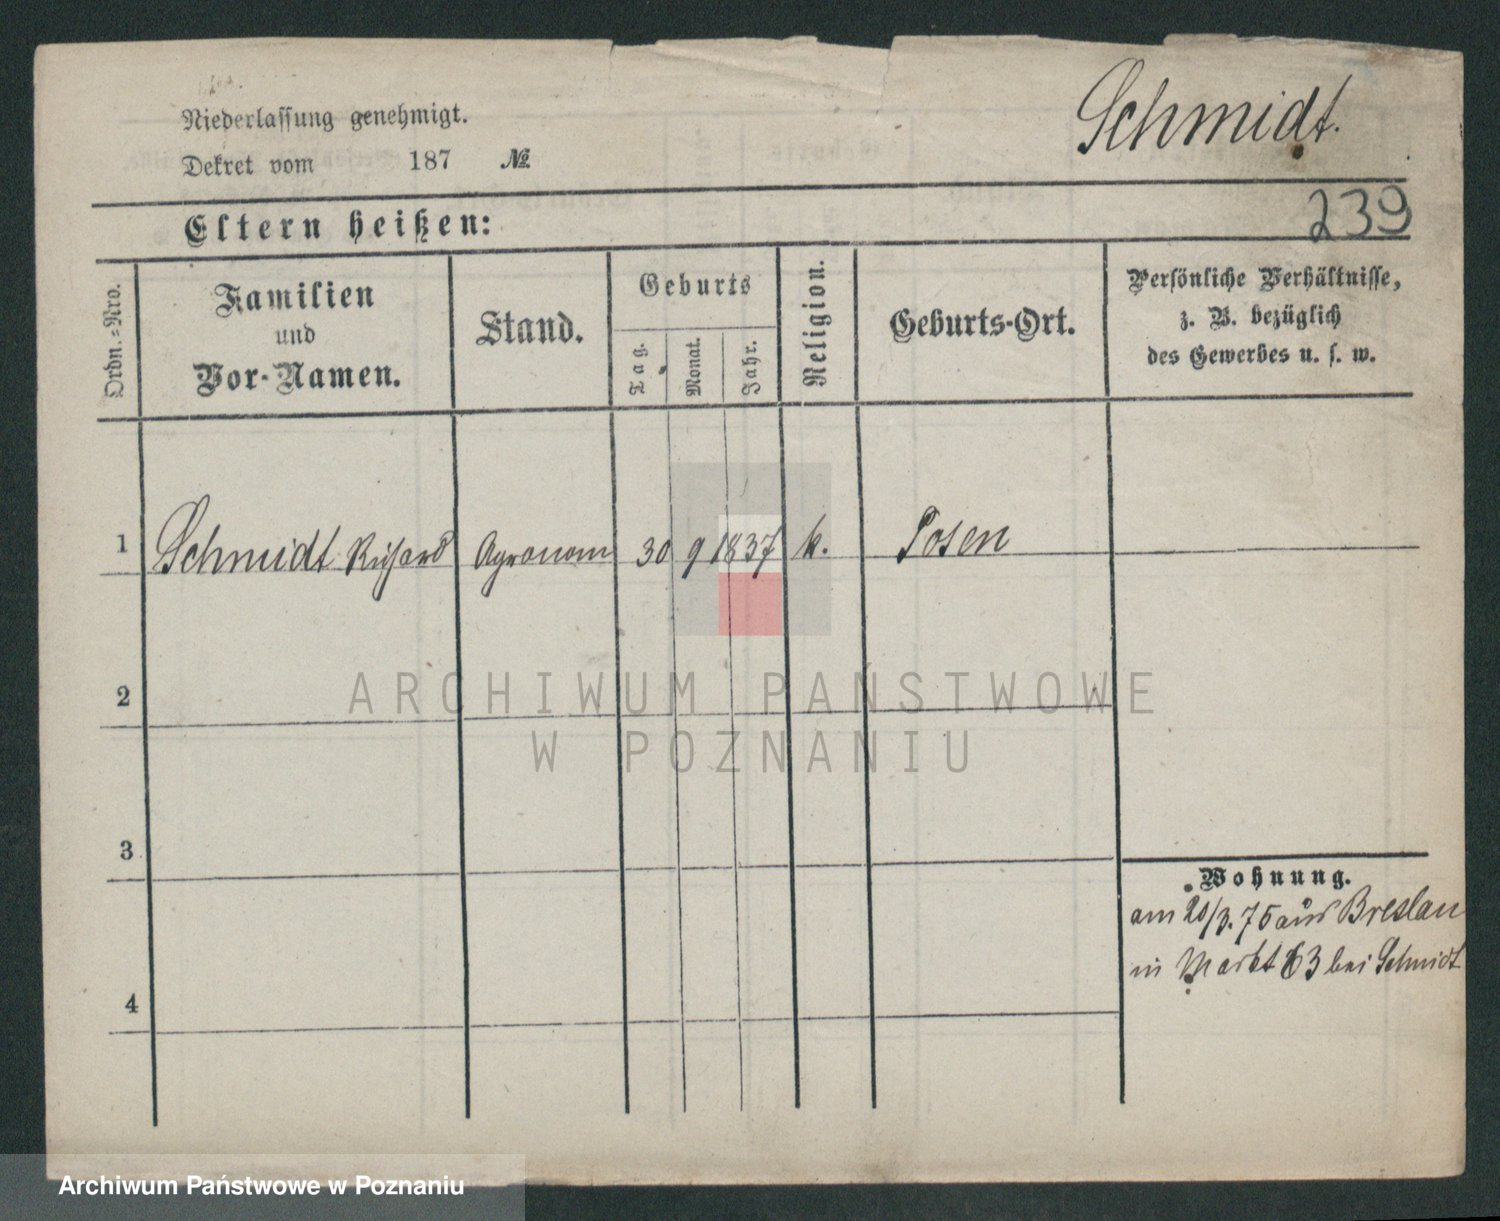 Schmidt.
Niederlassung genehmigt.
Dekret vom 187 №
239
Eltern heißen:
Ordn.-Nro.
Familien
und
Vor-Namen.
Stand.
Geburts
Tag.
Monat.
Jahr.
Religion.
Geburts-Ort.
Persönliche Verhältnisse,
z. B. bezüglich
des Gewerbes u. s. w.
1 Schmidt Richard Agronom 30 9 1837 k. Posen
2
ARCHIWUM PAŃSTWOWE
W POZNANIU
3
Wohnung.
am 20/3. 75 aus Breslau
in Markt 63 bei Schmidt
4
Archiwum Państwowe w Poznaniu